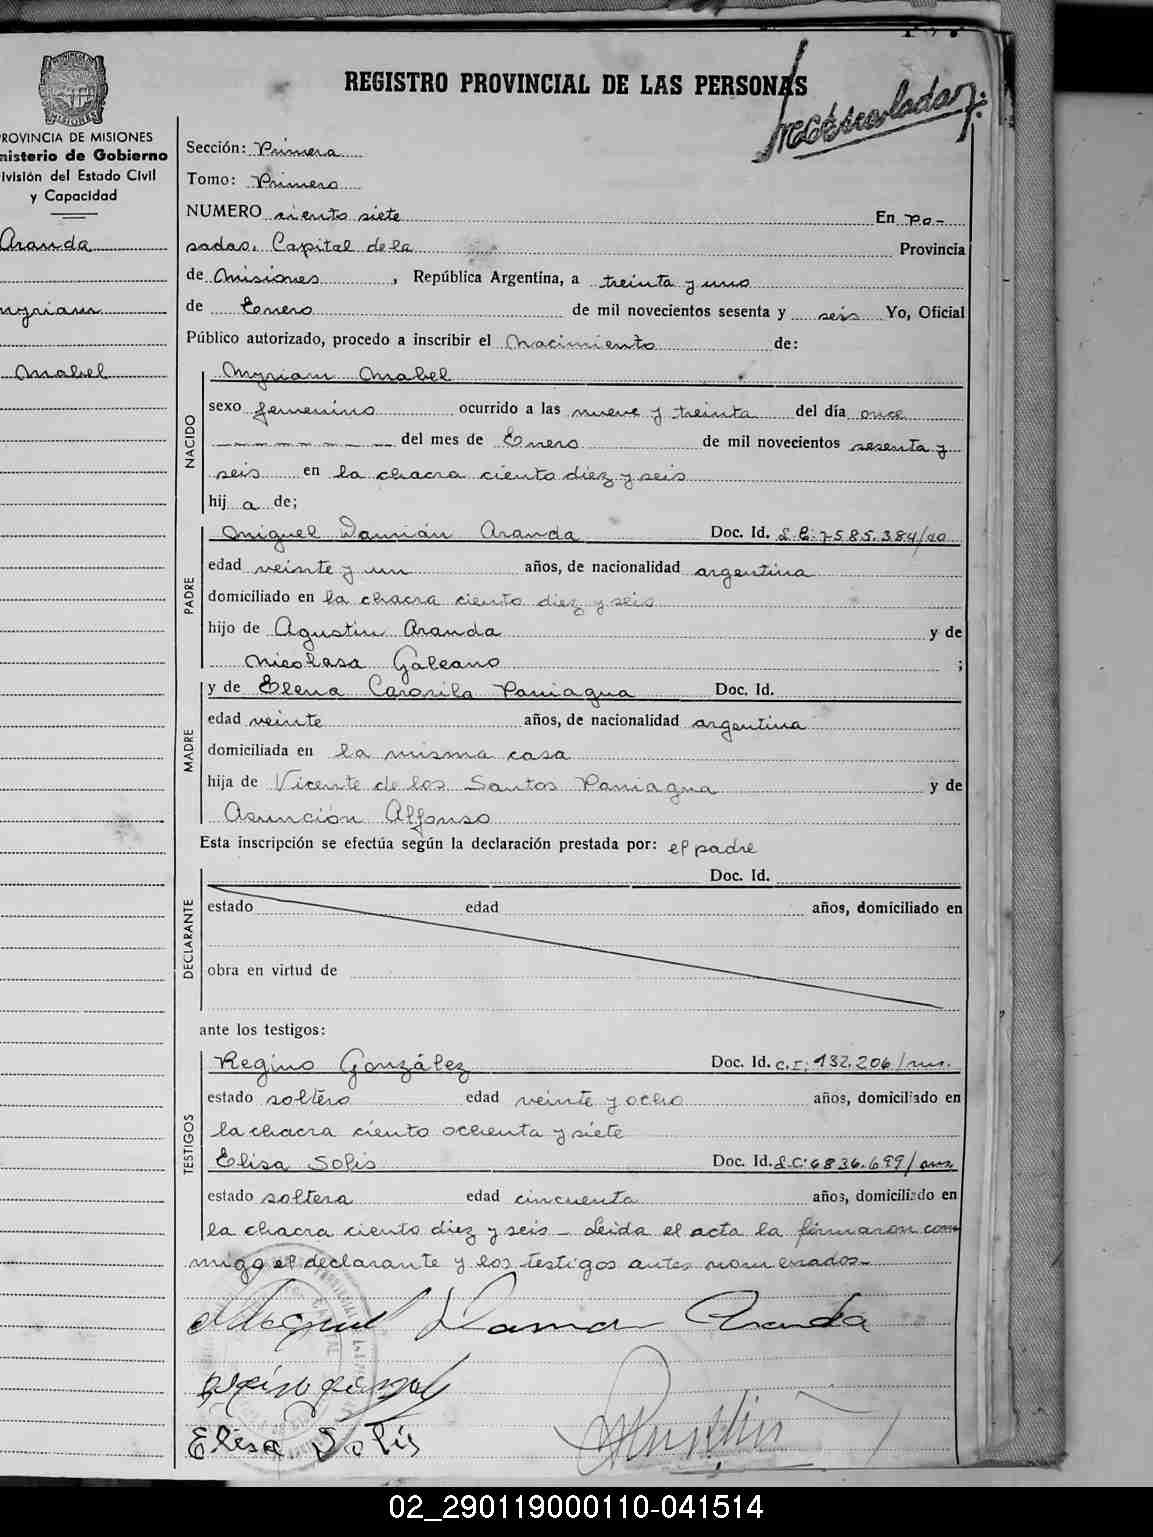 REGISTRO PROVINCIAL DE LAS PERSONAS
PROVINCIA DE MISIONES
Ministerio de Gobierno
División del Estado Civil
y Capacidad
Aranda
Myriam
Mabel
Sección: Primera
Tomo: Primero
NUMERO ciento siete En Po-
sadas, Capital de la Provincia
de Misiones, República Argentina, a treinta y uno
de Enero de mil novecientos sesenta y seis Yo, Oficial
Público autorizado, procedo a inscribir el Nacimiento de:
NACIDO
Myriam Mabel
sexo femenino ocurrido a las nueve y treinta del día once
del mes de Enero de mil novecientos sesenta y
seis en la chacra ciento diez y seis
hij a de;
PADRE
Miguel Damián Aranda Doc. Id. L.E: 7585.384/
edad veinte y un años, de nacionalidad argentina
domiciliado en la chacra ciento diez y seis
hijo de Agustin Aranda y de
Nicolasa Galeano ;
MADRE
y de Elena Paniagua Doc. Id.
edad veinte años, de nacionalidad argentina
domiciliada en la misma casa
hija de Vicente de los Santos Paniagua y de
Asunción Alfonso
Esta inscripción se efectúa según la declaración prestada por: el padre
DECLARANTE
Doc. Id.
estado edad años, domiciliado en
obra en virtud de
ante los testigos:
TESTIGOS
Regino González Doc. Id. C.I: 132.206/
estado soltero edad veinte y ocho años, domiciliado en
la chacra ciento ochenta y siete
Elisa Solis Doc. Id. L.C: 6836.699/
estado soltera edad cincuenta años, domiciliado en
la chacra ciento diez y seis - Leida el acta la firmaron con-
migo el declarante y los testigos antes nomerados-
Miguel Damian Aranda
Elisa Solis
02_290119000110-041514